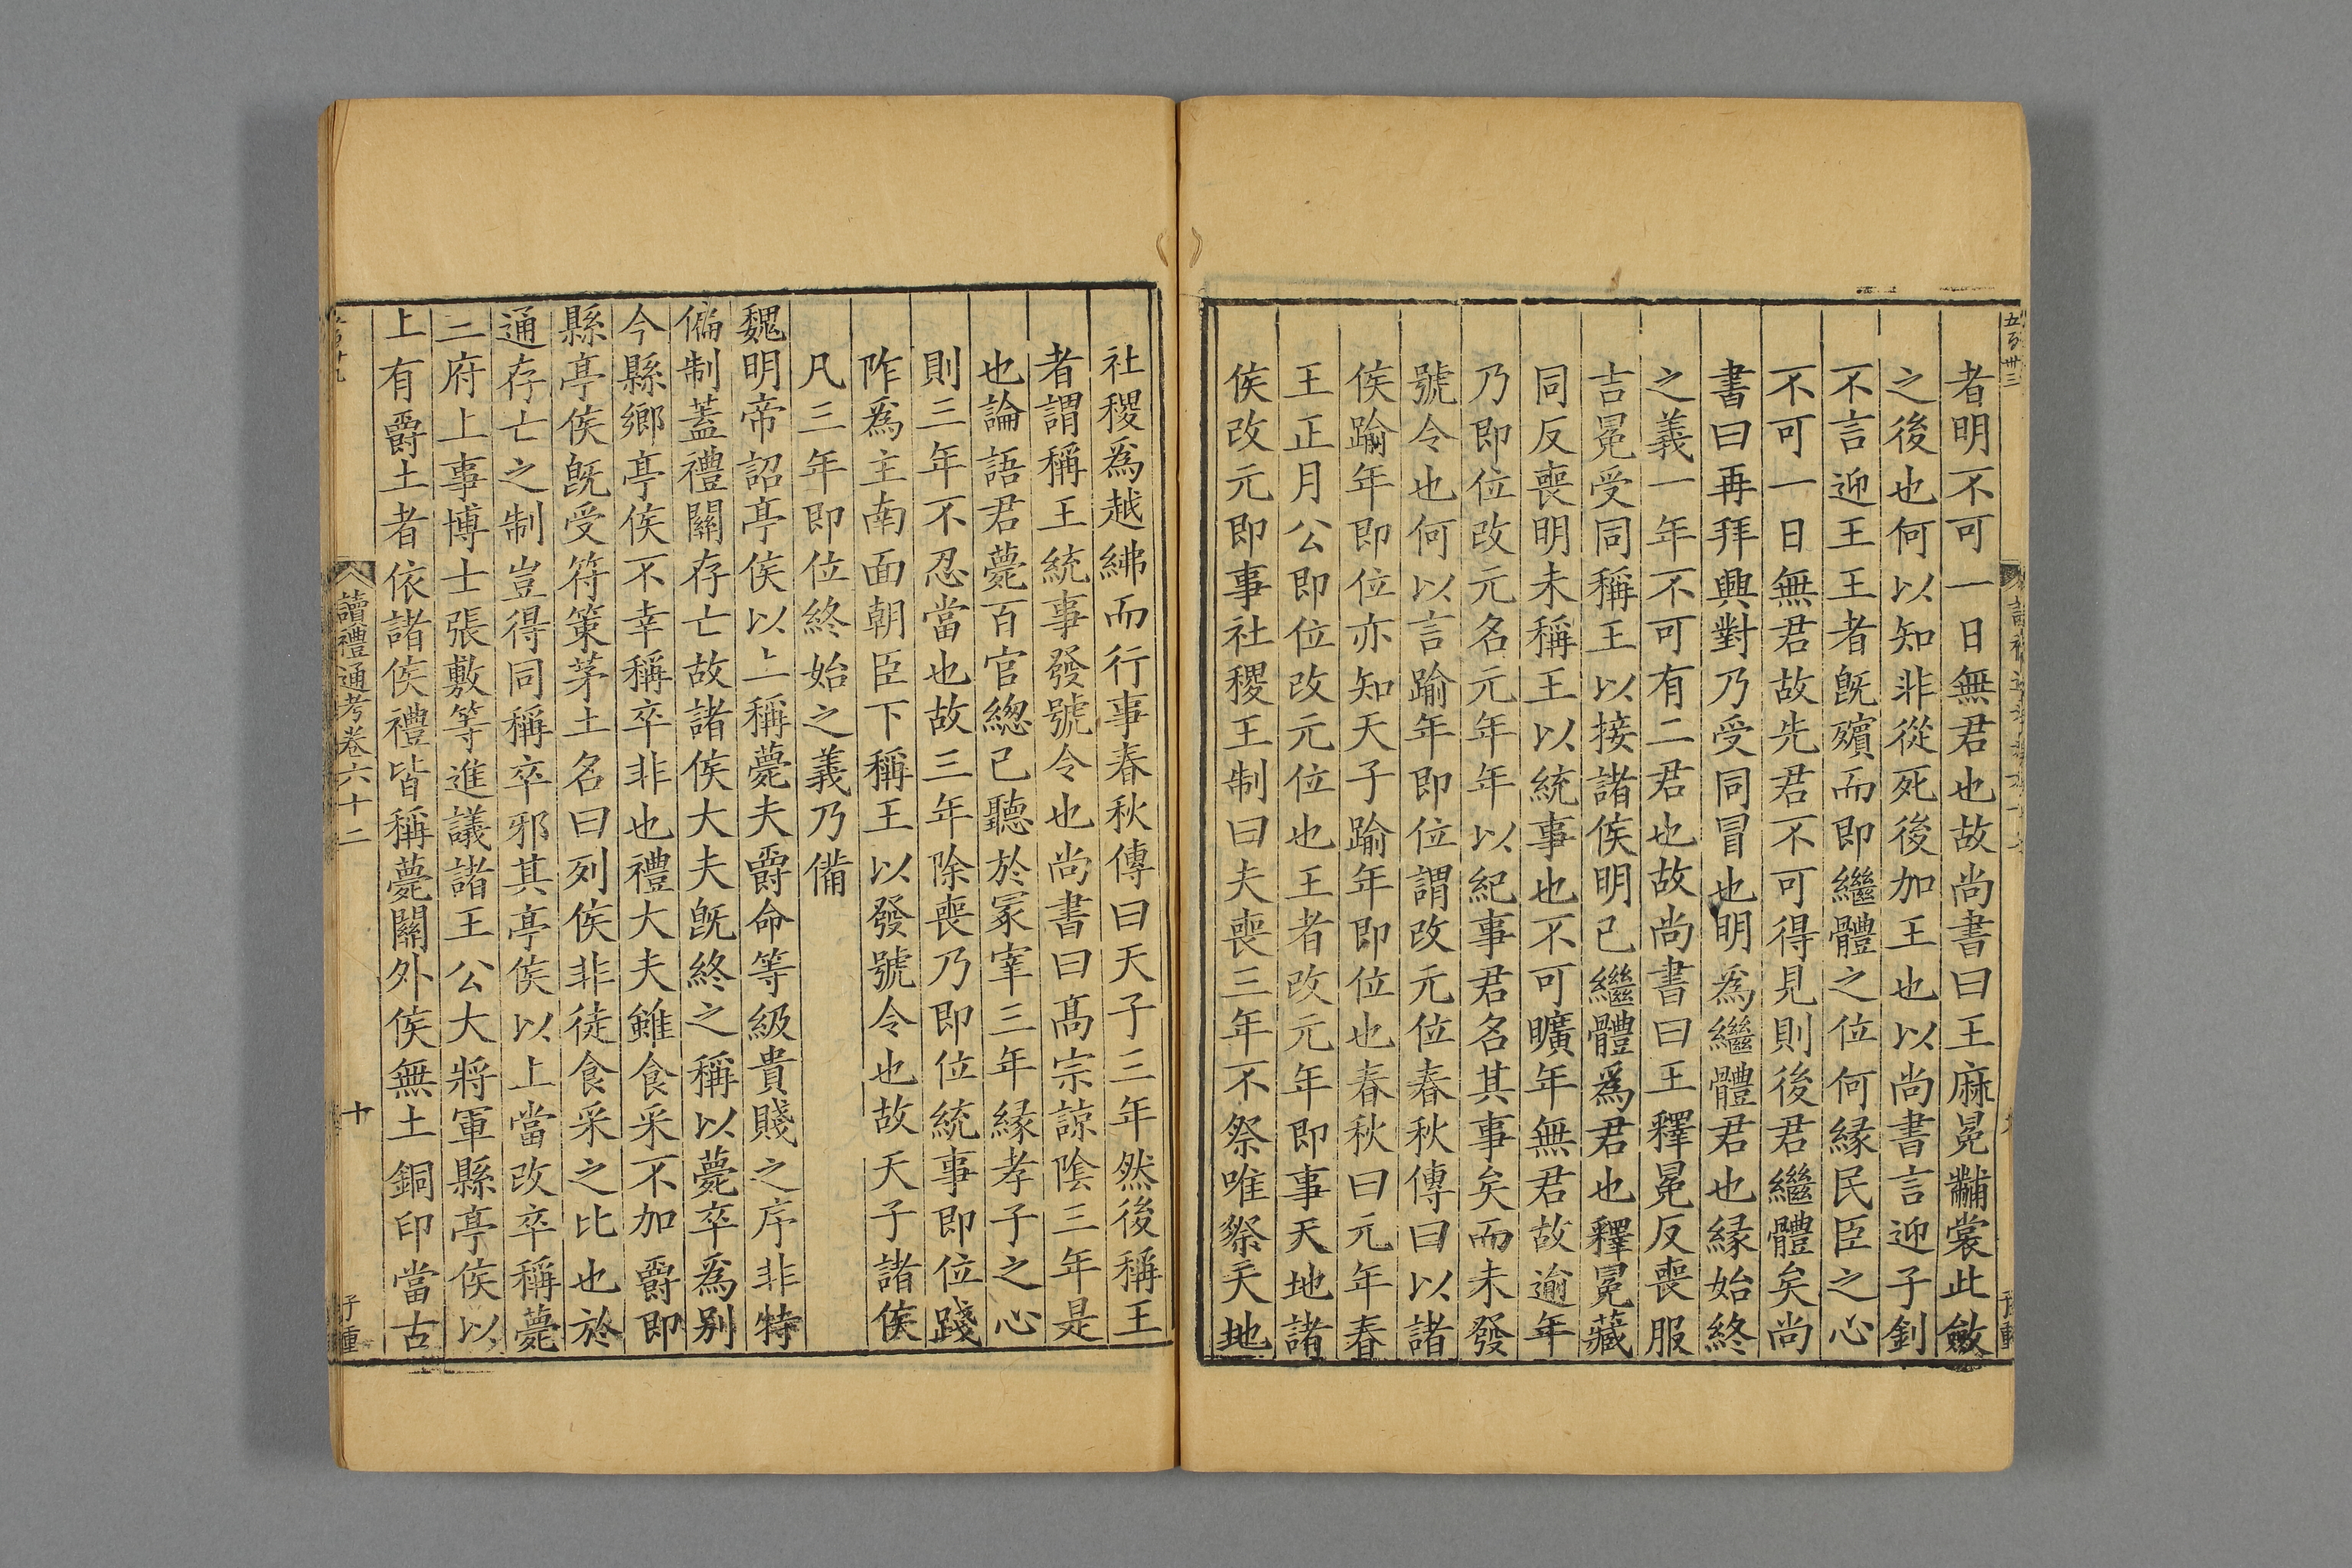 五百卅三
者明不可一日無君也故尚書曰王麻冕黼裳此斂
之後也何以知非從死後加王也以尚書言迎子釗
不言迎王王者旣殯而即繼體之位何緣民臣之心
不可一日無君故先君不可得見則後君繼體矣尚
書曰再拜興對乃受同冒也明爲繼體君也緣始終
之義一年不可有二君也故尚書曰王釋冕反喪服
吉冕受同稱王以接諸侯明已繼體爲君也釋冕藏
同反喪明未稱王以統事也不可曠年無君故逾年
乃即位改元名元年年以紀事君名其事矣而未發
號令也何以言踰年即位謂改元位春秋傳曰以諸
侯踰年即位亦知天子踰年即位也春秋曰元年春
王正月公即位改元位也王者改元年即事天地諸
侯改元即事社稷王制曰夫喪三年不祭唯祭天地
社稷爲越紼而行事春秋傳曰天子三年然後稱王
者謂稱王統事發號令也尚書曰高宗諒陰三年是
也論語君薨百官總已聽於冢宰三年緣孝子之心
則三年不忍當也故三年除喪乃即位統事即位踐
阼爲主南面朝臣下稱王以發號令也故天子諸侯
凡三年即位終始之義乃備
魏明帝詔亭侯以上稱薨夫爵命等級貴賤之序非特
偏制蓋禮關存亡故諸侯大夫旣終之稱以薨卒爲別
今縣鄉亭侯不幸稱卒非也禮大夫雖食采不加爵即
縣亭侯旣受符策茅土名曰列侯非徒食采之比也於
通存亡之制豈得同稱卒邪其亭侯以上當改卒稱薨
二府上事博士張敷等進議諸王公大將軍縣亭侯以
上有爵土者依諸侯禮皆稱薨關外侯無土銅印當古
讀禮通考卷六十二
十
子重